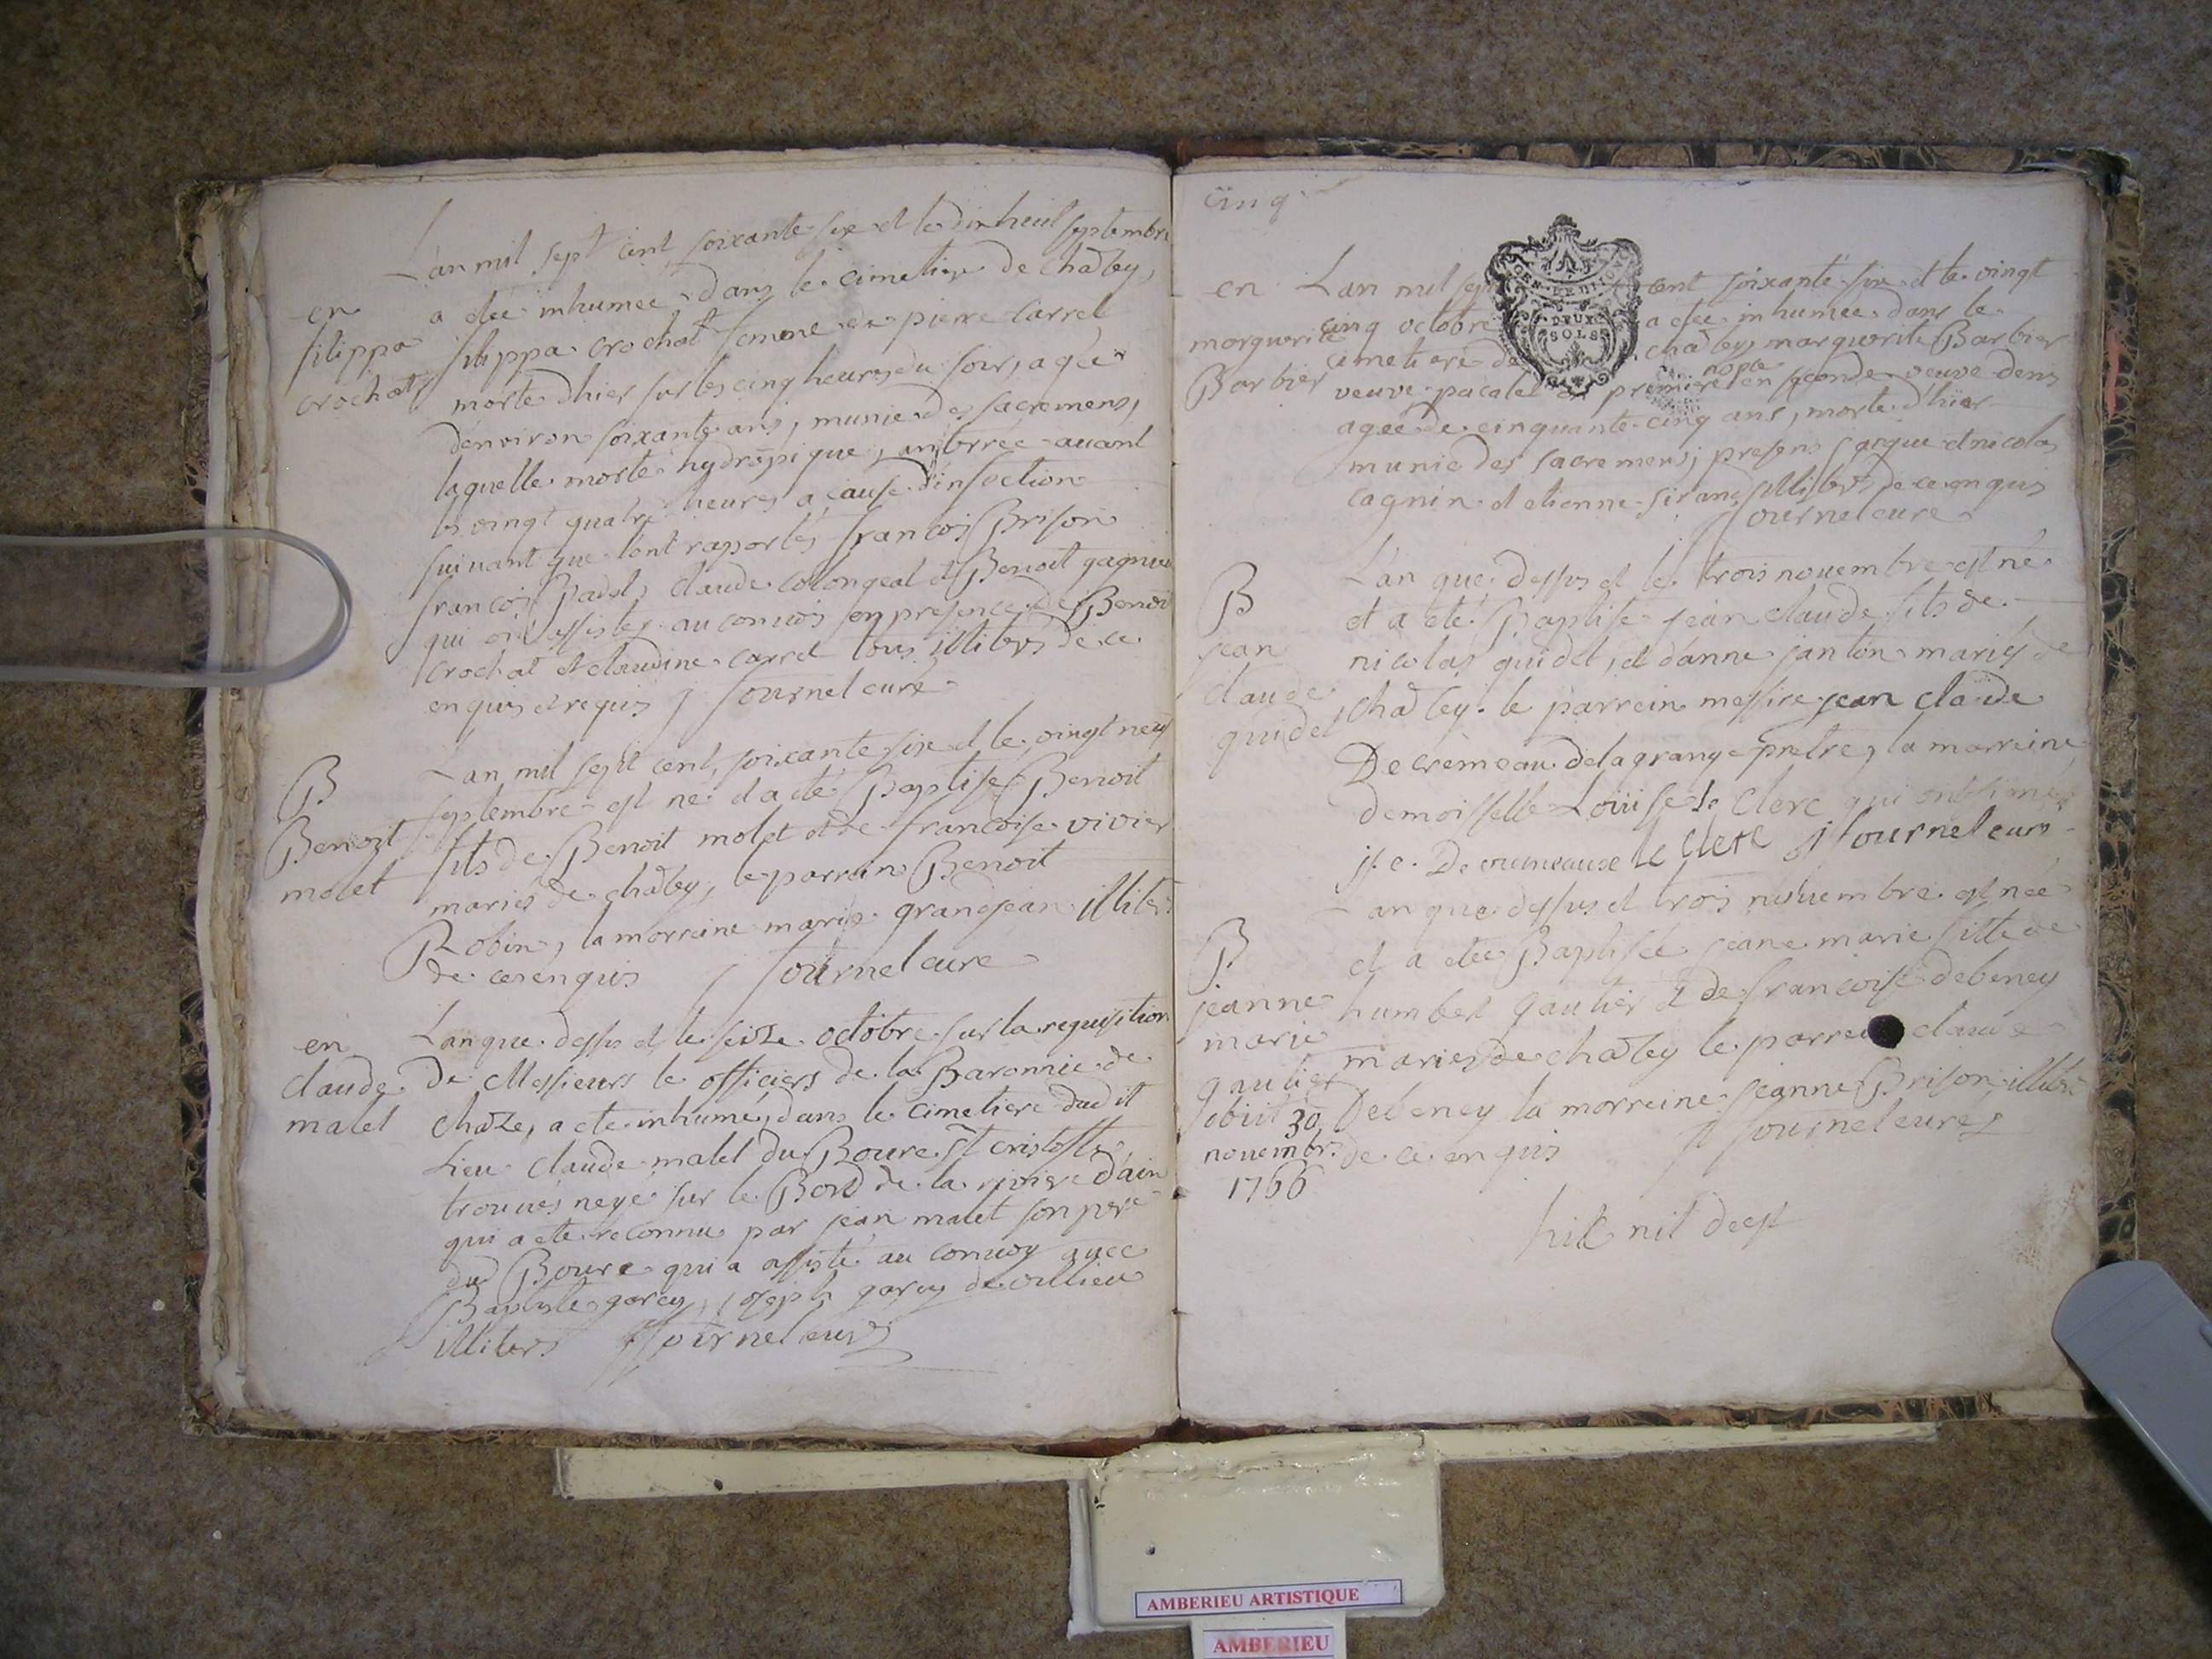 L'an mil sept cent soixante six et le dixhuit septembre
en a eté inhumée dans le cimetiere de chaley,
filippa filippa crochat femme de pierre Carrel
crochat morte dhier sur les cinq heures du soir, agée
d'environ soixante ans, munie des sacremens,
laquelle morte hydropique, anterrée auant
les vingt quatre heures a cause d'infection
suiuant que lont raportés francois Brison
francois Claude colongeat et Benoit gagnieu
qui ont assistez au conuois en presence de Benoi
crochat et claudine carrel tous illiters de ce
enquis et requis j fournel curé
B L'an mil sept cent soixante six et le vingt neuf
septembre est né et a eté Baptisé Benoit
Benoit fils de Benoit molet et de francoise vivier
molet mariés de chaley, le parrain Benoit
Robin, la morreine marie grandjean illiters
de ce enquis j fournel curé
en L'an que dessus et le seize octobre sur la requisition
claude de Messieurs le officiers de la Baronnie de
malet chaze, a eté inhumé dans le cimetiere dudit
Lieu claude malet du Boure St cristofle
trouués neyé sur le Bord de la riviere d'ain
qui a eté reconnu par jean malet son pere
du Boure qui a assisté au conuoy avec
Baptiste garey, joseph garey de
illiters j fournel curé
cinq
en L'an mil sept cent soixante six et le vingt
morguerite cinq octobre a eteé inhumée dans le
cimetiere de chaley marguerite Barbier
Barbier veuve pacalet en premiere nopce en seconde veuve dens
agée de cinquante cinq ans, morte d'hier
munie des sacremens; presens jacque et nicolas
cagnin et etienne sirand illiters de ce enquis
j fournel cure
B L'an que dessus et le trois nouembre est né
et a eté Baptise jean claude fils de
jean nicolas guidet, et d'anne janton mariés de
claude chaley. le parrein messire jean claude
guidet De cremeau delagrange pretre, la marreine
demoisselle Louise le Clerc qui ont signes
j. c. De cremeause le Clerc j fournel curé
L'an que dessus et trois nouembre est née
B et a eteé Baptisée jeane marie fille de
jeanne humbert gautier et de francoise debeney
marie mariés de chaley le parrein claude
gautier Debeney la morreine jeanne Brison illiters
obiit 30 de ce enquis j fournel curé
nouembr.
1766
hic nil deest
GEN DE DIJON
DEUX
SOLS
AMBERIEU ARTISTIQUE
AMBERIEU